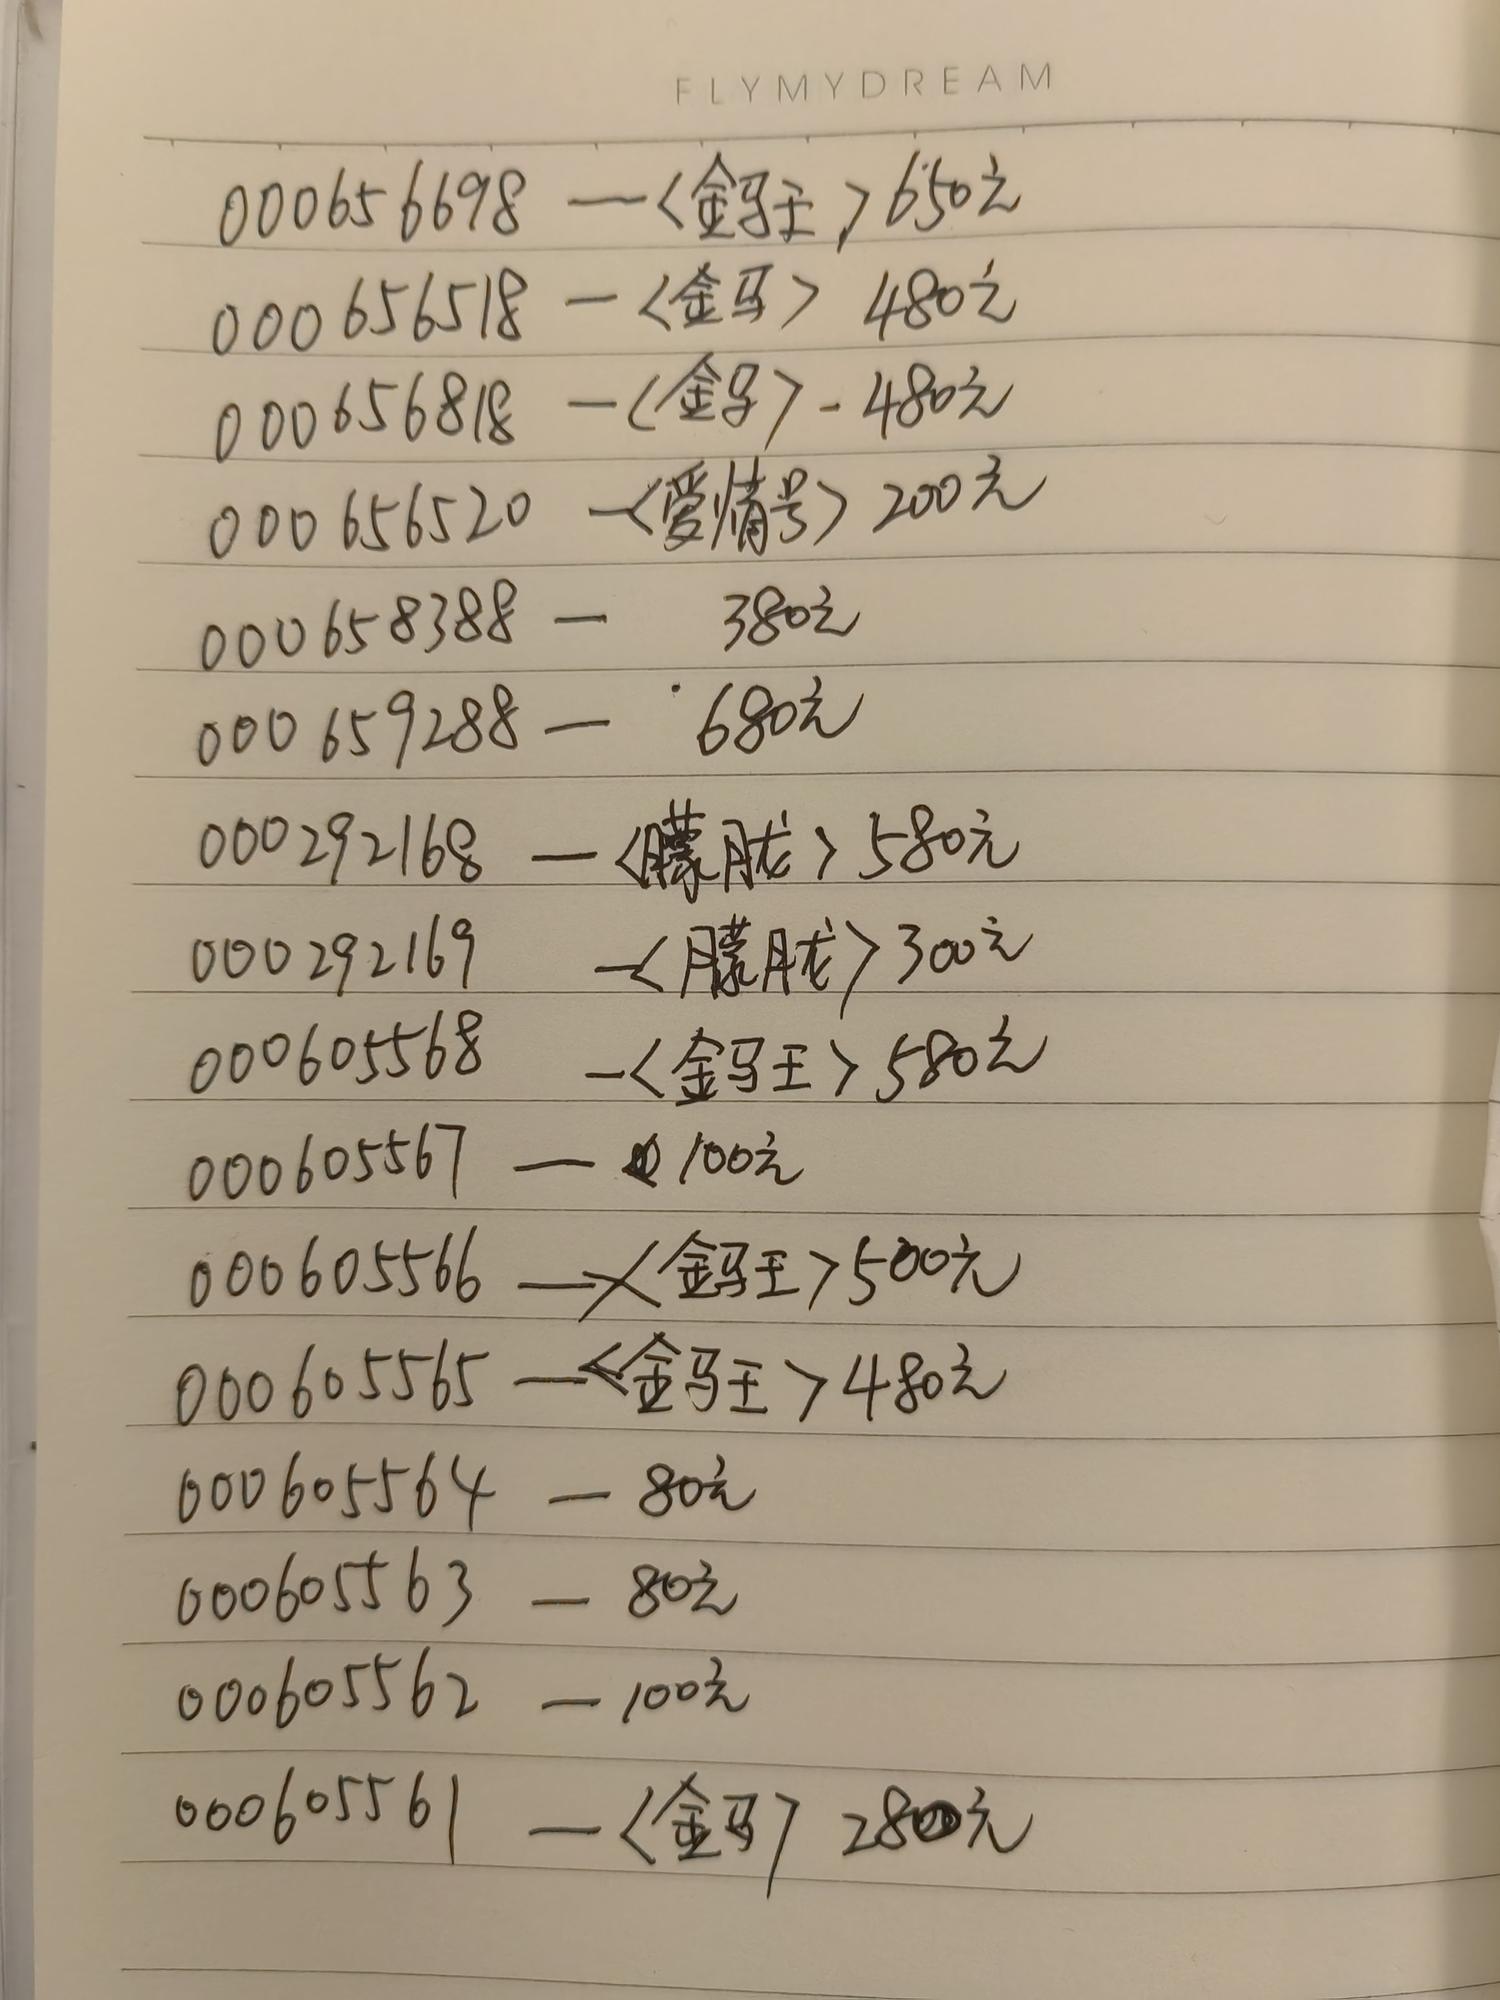 FLYMYDREAM
000656698 —<金马王>650元
000656518 —<金马> 480元
000656818 —<金马>-480元
000656520 —<爱情号>200元
000658388 — 380元
000659288 — 680元
000292168 —<朦胧>580元
000292169 —<朦胧>300元
000605568 —<金马王>580元
000605567 — 100元
000605566 —<金马王>500元
000605565 —<金马王>480元
000605564 — 80元
000605563 — 80元
000605562 — 100元
000605561 —<金马> 280元